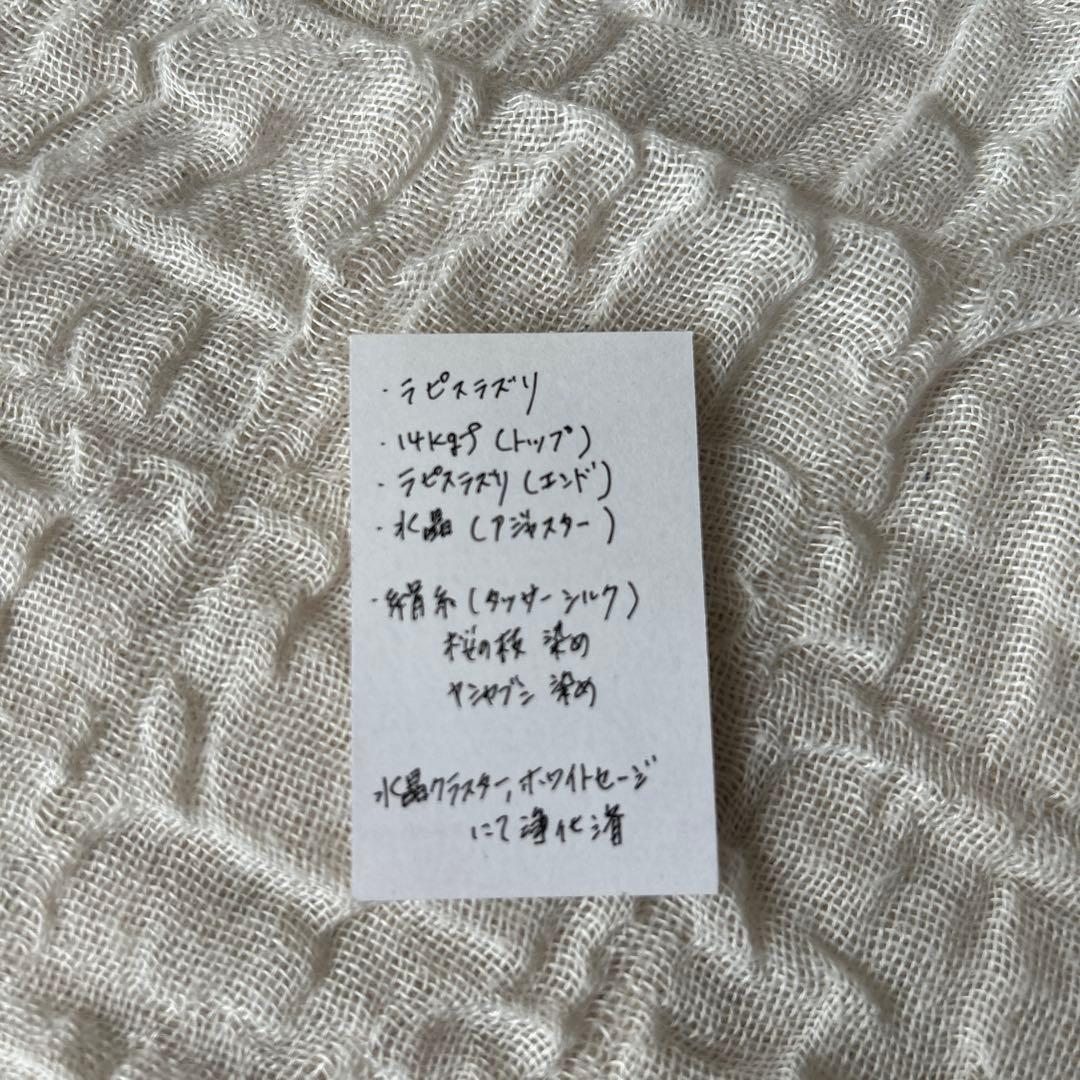 ・ラピスラズリ
・14Kgf(トップ)
・ラピスラズリ(エンド)
・水晶(アジャスター)
・絹糸(タッサーシルク)
桜の枝 染め
ヤシャブシ 染め
水晶クラスター,ホワイトセージ
にて浄化済